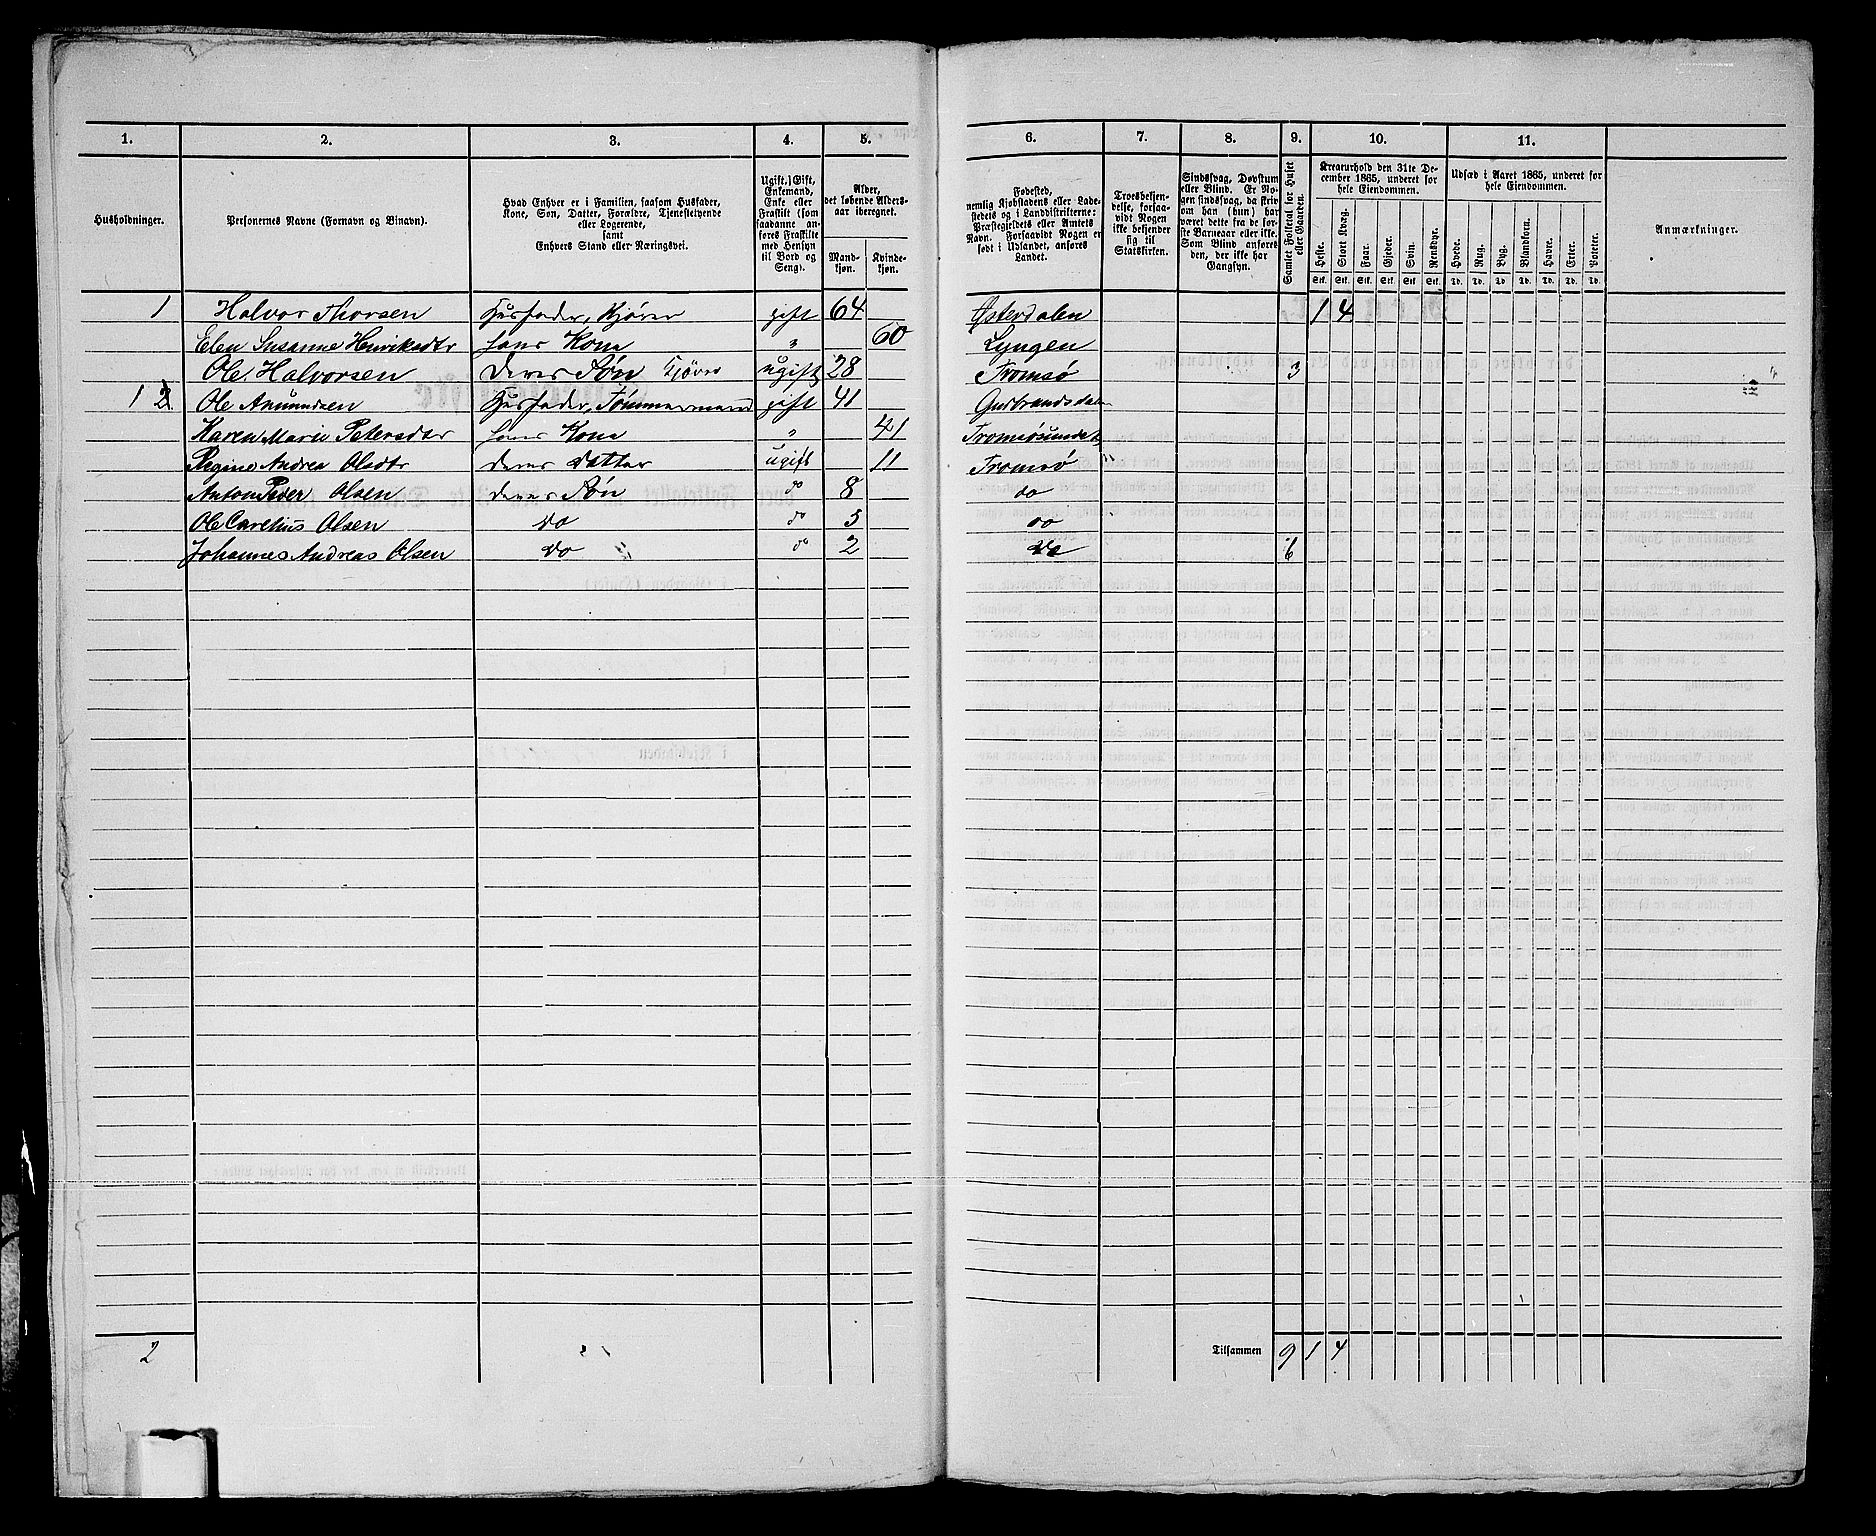 1. 2. 3. 4. 5. 6. 7. 8. 9. 10. 11.
Husholdninger.
Personernes Navne (Fornavn og Binavn).
Hvad Enhver er i Familien, saasom Husfader, Kone, Søn, Datter, Forældre, Tjenestetyende eller Logerende, samt Enhvers Stand eller Næringsvei.
Ugift, Gift, Enkemand, Enke eller Fraskilt (som saadanne anføres Fraskilte med Hensyn til Bord og Seng).
Alder, det løbende Aldersaar iberegnet.
Mandkjøn. Kvindekjøn.
Fødested, nemlig Kjøbstadens eller Ladestedets og i Landdistrikterne: Præstegjeldets eller Amtets Navn. Forsaavidt Nogen er født i Udlandet, anføres Landet.
Troesbekjendelse, forsaavidt Nogen ikke bekjender sig til Statskirken.
Sindssvag, Døvstum eller Blind. Er Nogen sindssvag, da skriv om han (hun) har været dette fra de første Barneaar eller ikke. Som Blind anføres den, der ikke har Gangsyn.
Samlet Folketal for Huset eller Gaarden.
Kreaturhold den 31te December 1865, underet for hele Eiendommen.
Heste. Stort Kvæg. Faar. Gjeder. Svin. Rensdyr.
Stk. Stk. Stk. Stk. Stk. Stk.
Udsæd i Aaret 1865, underet for hele Eiendommen.
Hvede. Rug. Byg. Blandkorn. Havre. Erter. Poteter.
Td. Td. Td. Td. Td. Td. Td.
Anmærkninger.
1 Halvor Thorsen Husfader, Kjører gift 64 Østerdalen 1 4
Elen Susanne Henriksdtr hans Kone " 60 Lyngen
Ole Halvorsen deres Søn Kjører ugift 28 Tromsø 3
1 2 Ole Amundsen Husfader, Tømmermand gift 41 Gudbrandsdalen
Karen Marie Petersdtr hans Kone " 41 Tromsøsundet
Regine Andrea Olsdtr deres Datter ugift 11 Tromsø
Anton Peder Olsen deres Søn do 8 do
Ole Carelius Olsen do do 5 do
Johannes Andreas Olsen do do 2 do 6
2 Tilsammen 9 1 4